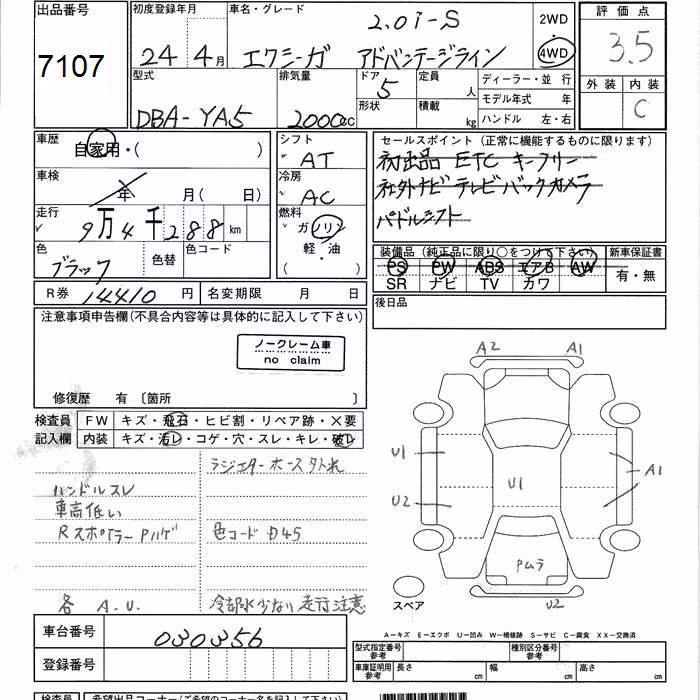 出品番号
7107
初度登録年月
24年 4月
車名・グレード
2.0i-S
エクシーガ アドバンテージライン
2WD
4WD
評価点
3.5
外装 内装
C
型式
DBA-YA5
排気量
2000cc
ドア
5
形状
定員
人
積載
kg
ディーラー・並行
モデル年式 年
ハンドル 左・右
車歴
自家用・( )
車検
年 月( 日)
走行
9万4千288km
色
ブラック
色替
色コード
R券 14410 円
名変期限 月 日
シフト
AT
冷房
AC
燃料
ガソリン
軽・油
( )
セールスポイント (正常に機能するものに限ります)
初出品 ETC キーフリー
社外ナビ テレビ バックカメラ
パドルシフト
装備品 (純正品に限り○をつけて下さい)
PS PW ABS エアB AW
SR ナビ TV カワ
新車保証書
有・無
後日品
注意事項申告欄(不具合内容等は具体的に記入して下さい)
ノークレーム車
no claim
修復歴 有 〔箇所 〕
検査員
記入欄
FW キズ・飛石・ヒビ割・リペア跡・X要
内装 キズ・汚レ・コゲ・穴・スレ・キレ・破レ
ラジエターホース外れ
ハンドルスレ
車高低い
Rスポイラー Pハゲ
色コード D45
各 A.U.
冷却水少ない走行注意
A2 A1
U1
U2
U1
A1
Pムラ
U2
スペア
A-キズ E-エクボ U-凹み W-補修跡 S-サビ C-腐食 XX-交換済
車台番号
030356
登録番号
型式指定番号
参考
種別区分番号
参考
車庫証明用
参考
長さ cm
幅 cm
高さ cm
検査員
希望出品コーナー(ご希望のコーナー名をご記入